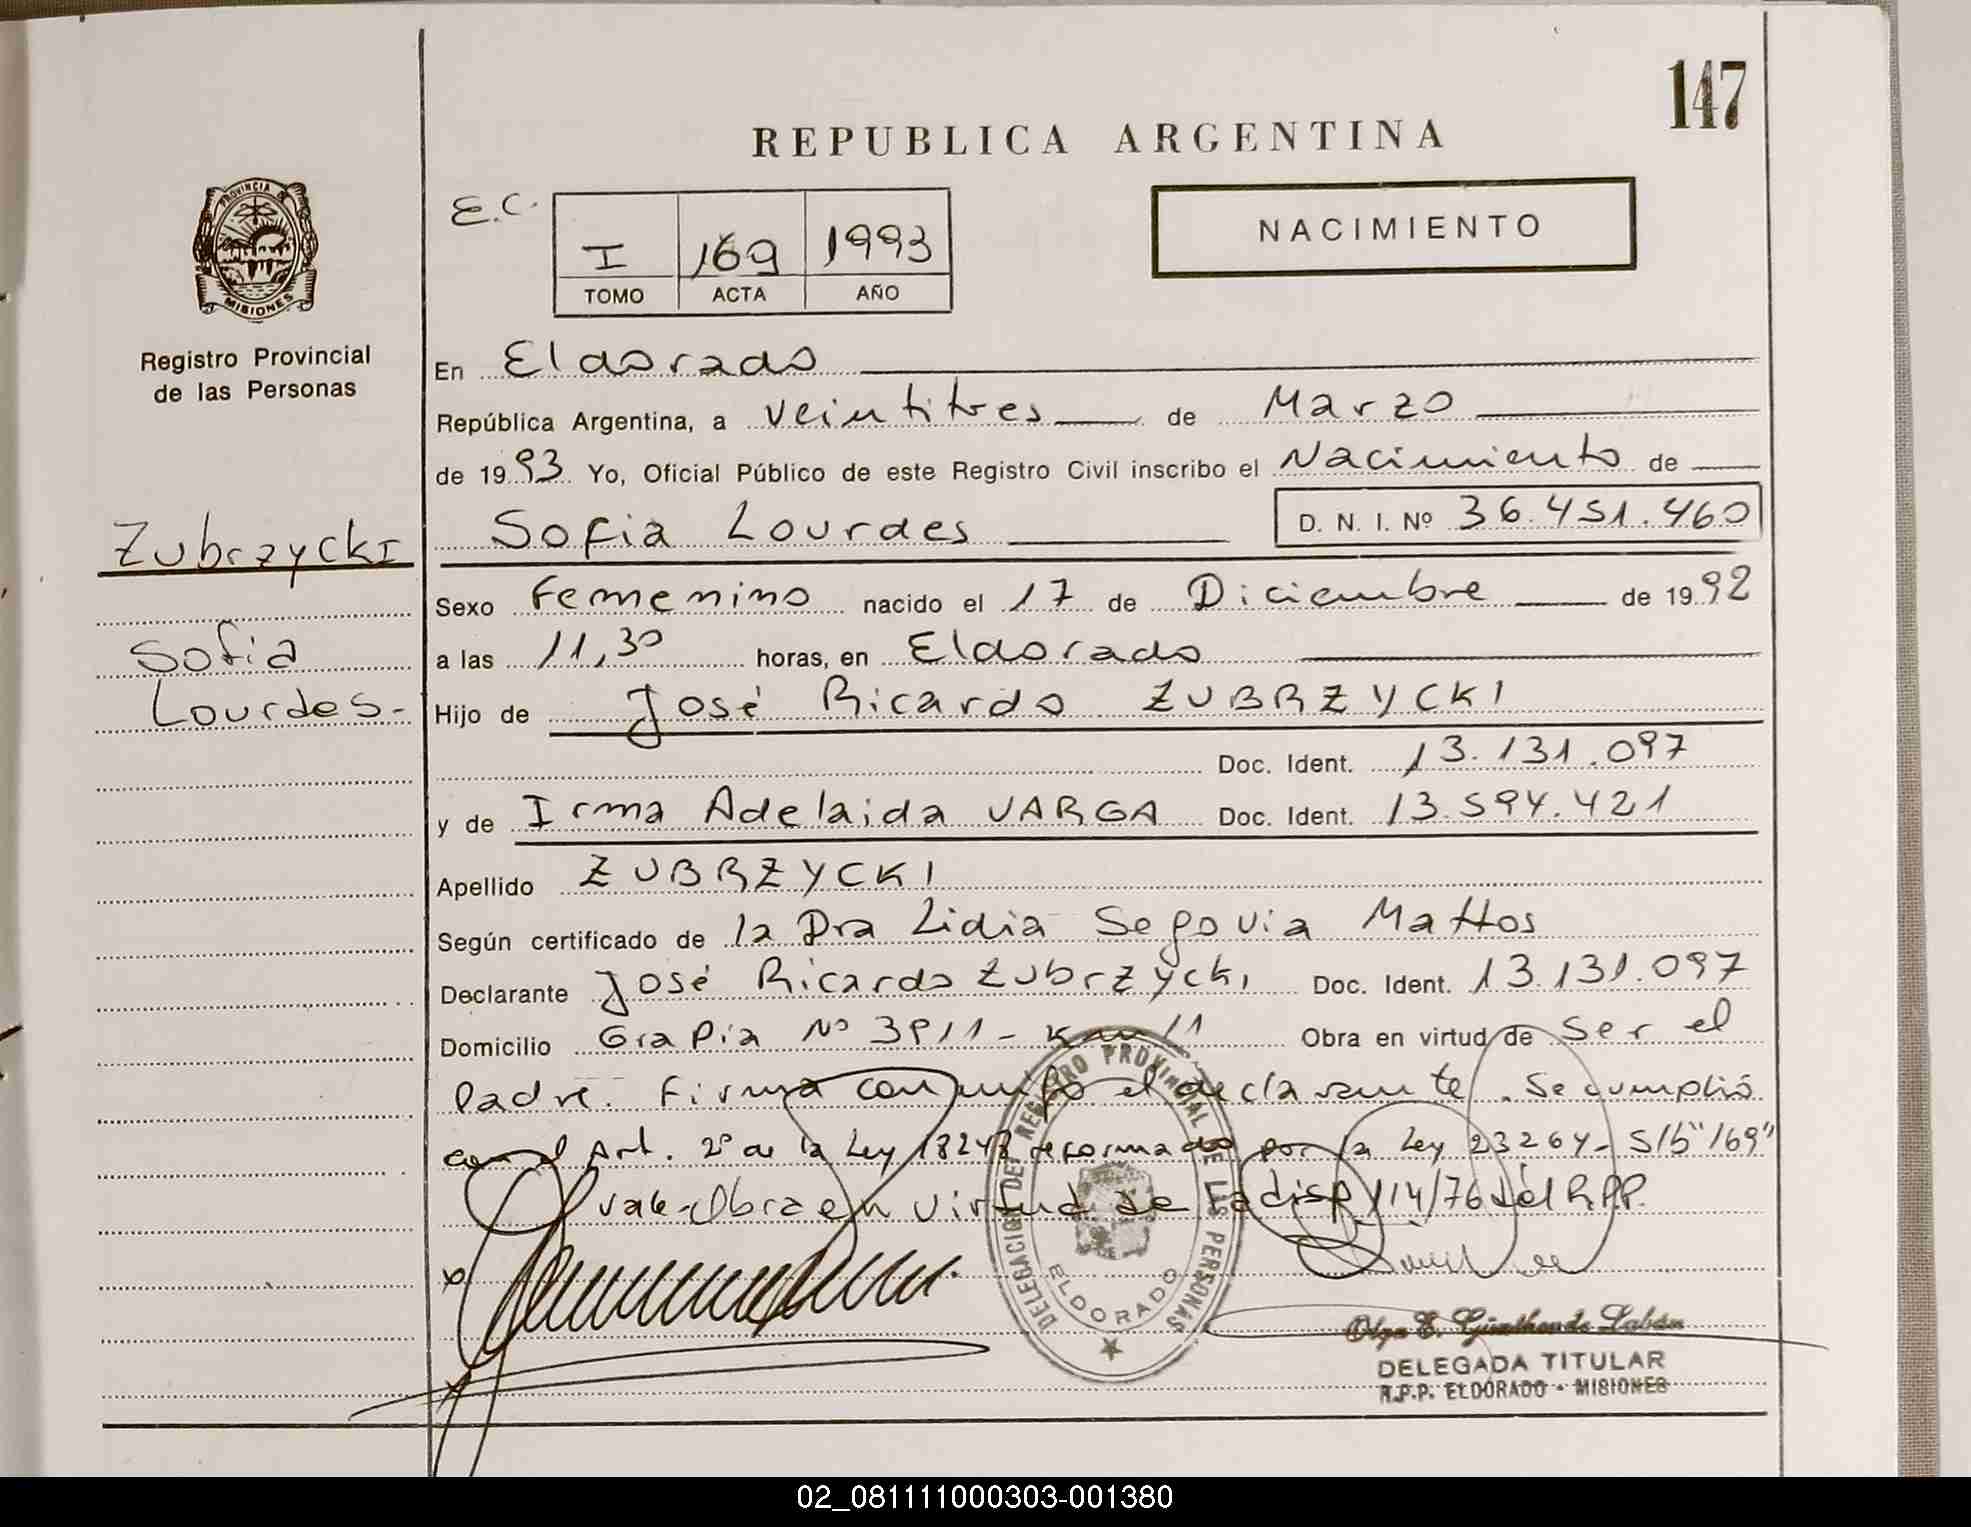 147
REPUBLICA ARGENTINA
PROVINCIA DE
MISIONES
Registro Provincial
de las Personas
E.C.
I 169 1993
TOMO ACTA AÑO
NACIMIENTO
En Eldorado
República Argentina, a veintitres de Marzo
de 1993 Yo, Oficial Público de este Registro Civil inscribo el Nacimiento de
Zubrzycki
Sofia Lourdes D. N. I. Nº 36.451.460
Sexo Femenino nacido el 17 de Diciembre de 1992
Sofia
a las 11,30 horas, en Eldorado
Lourdes.-
Hijo de José Ricardo ZUBRZYCKI
Doc. Ident. 13.131.097
y de Irma Adelaida VARGA Doc. Ident. 13.594.421
Apellido ZUBRZYCKI
Según certificado de la Dra Lidia Segovia Mattos
Declarante José Ricardo Zubrzycki Doc. Ident. 13.131.097
Domicilio Grapia Nº 3911 - Km 11 Obra en virtud de Ser el
Padre. Firma conmigo el declarante. Se cumplió
con el Art. 2º de la Ley 18248 reformado por la Ley 23264 - S/b "169"
vale - Obra en virtud de la disp 114/76 del R.P.P.
DELEGACION DEL REGISTRO PROVINCIAL DE LAS PERSONAS
ELDORADO
Olga E. Günther de Labán
DELEGADA TITULAR
R.P.P. ELDORADO - MISIONES
02_081111000303-001380